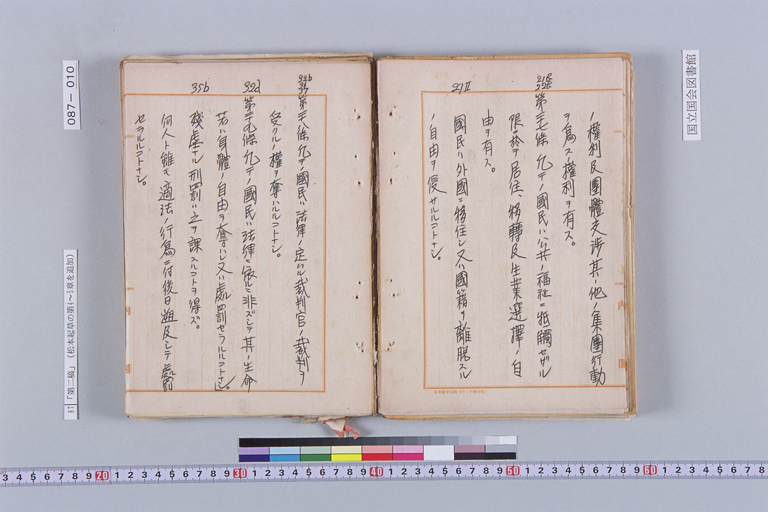 ノ權利及團體交渉其ノ他ノ集團行動
ヲ爲スノ權利ヲ有ス。
第二十七條 凡テノ國民ハ公共ノ福祉ニ牴觸セザル
限ニ於テ居住、移轉及生業選擇ノ自
由ヲ有ス。
國民ハ外國ニ移住シ又ハ國籍ヲ離脱スル
ノ自由ヲ侵サルルコトナシ。
第二十八條 凡テノ國民ハ法律ノ定ムル裁判官ノ裁判ヲ
受クルノ權ヲ奪ハルルコトナシ。
第二十九條 凡テノ國民ハ法律ニ依ルニ非ズシテ其ノ生命
若ハ身體ノ自由ヲ奪ハレ又ハ處罰セラルルコトナシ。
殘虐ナル刑罰ハ之ヲ課スルコトヲ得ズ。
何人ト雖モ適法ノ行爲ニ付後日遡及シテ處罰
セラルルコトナシ。
21Ⅱ
22b
22d
35b
087-010
87「第二稿」(松本起草の第1~5章を追加)
国立国会図書館
3 4 5 6 7 8 9 20 1 2 3 4 5 6 7 8 9 30 1 2 3 4 5 6 7 8 9 40 1 2 3 4 5 6 7 8 9 50 1 2 3 4 5 6 7 8 9 60 1 2 3 4 5 6 7 8